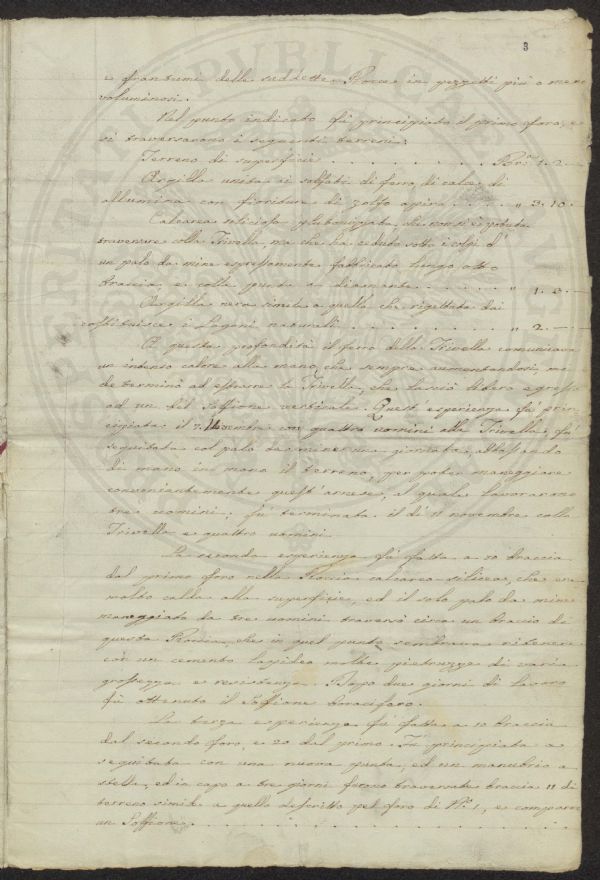 3
e frantumi delle suddette Rocce in pezzetti più o meno
voluminosi.
Nel punto indicato fù principiato il primo foro, e
si traversarono i seguenti terreni:
Terreno di superficie . . . . . . . . Bra. 1. 2. —
Argilla unita ai solfati di ferro, di calce, di
allumina con fioriture di zolfo . . . . " 3. 10. —
Calcarea siliciosa, che non si è potuta
traversare colla Trivella, ma che ha ceduto sotto i colpi d'
un palo da mine espressamente fabbricato lungo otto
braccia, e colla punta a diamante . . . . . . " 1. —
Argilla nera simile a quella che rigettata dai
costituisce i Lagoni naturali . . . . . . . . " 2. —
A questa profondità il ferro della Trivella comunicava
un intenso calore alla mano, che sempre aumentandosi, mi
determinò ad estrarre la Trivella, che lasciò libero egresso
ad un bel Soffione verticale. Quest'esperienza fù prin-
cipiata il 7. Novembre con quattro uomini alla Trivella, fù
seguitata col palo da mine una giornata, abbassando
di mano in mano il terreno, per poter maneggiare
convenientemente quest'arnese, al quale lavorarono
tre uomini; fù terminata il dì 11 novembre colla
Trivella e quattro uomini.
La seconda esperienza fù fatta a 10 braccia
dal primo foro nella Roccia calcareo-silicea, che era
molto calda alla superficie, ed il solo palo da mine
maneggiato da tre uomini traversò circa un braccio di
questa Roccia, che in quel punto sembrava ritenere
con un cemento lapideo molte pietruzze di varia
grossezza e resistenza. Dopo due giorni di lavoro
fù ottenuto il Soffione boracifero.
La terza esperienza fù fatta a 10 braccia
dal secondo foro, e 20 dal primo. Fù principiata e
seguitata con una nuova punta, ed un manubrio a
stella, ed in capo a tre giorni furono traversate braccia 11 di
terreno simile a quello descritto pel foro di No. 1, e comparve
un Soffione . . . . . . . . . . . .